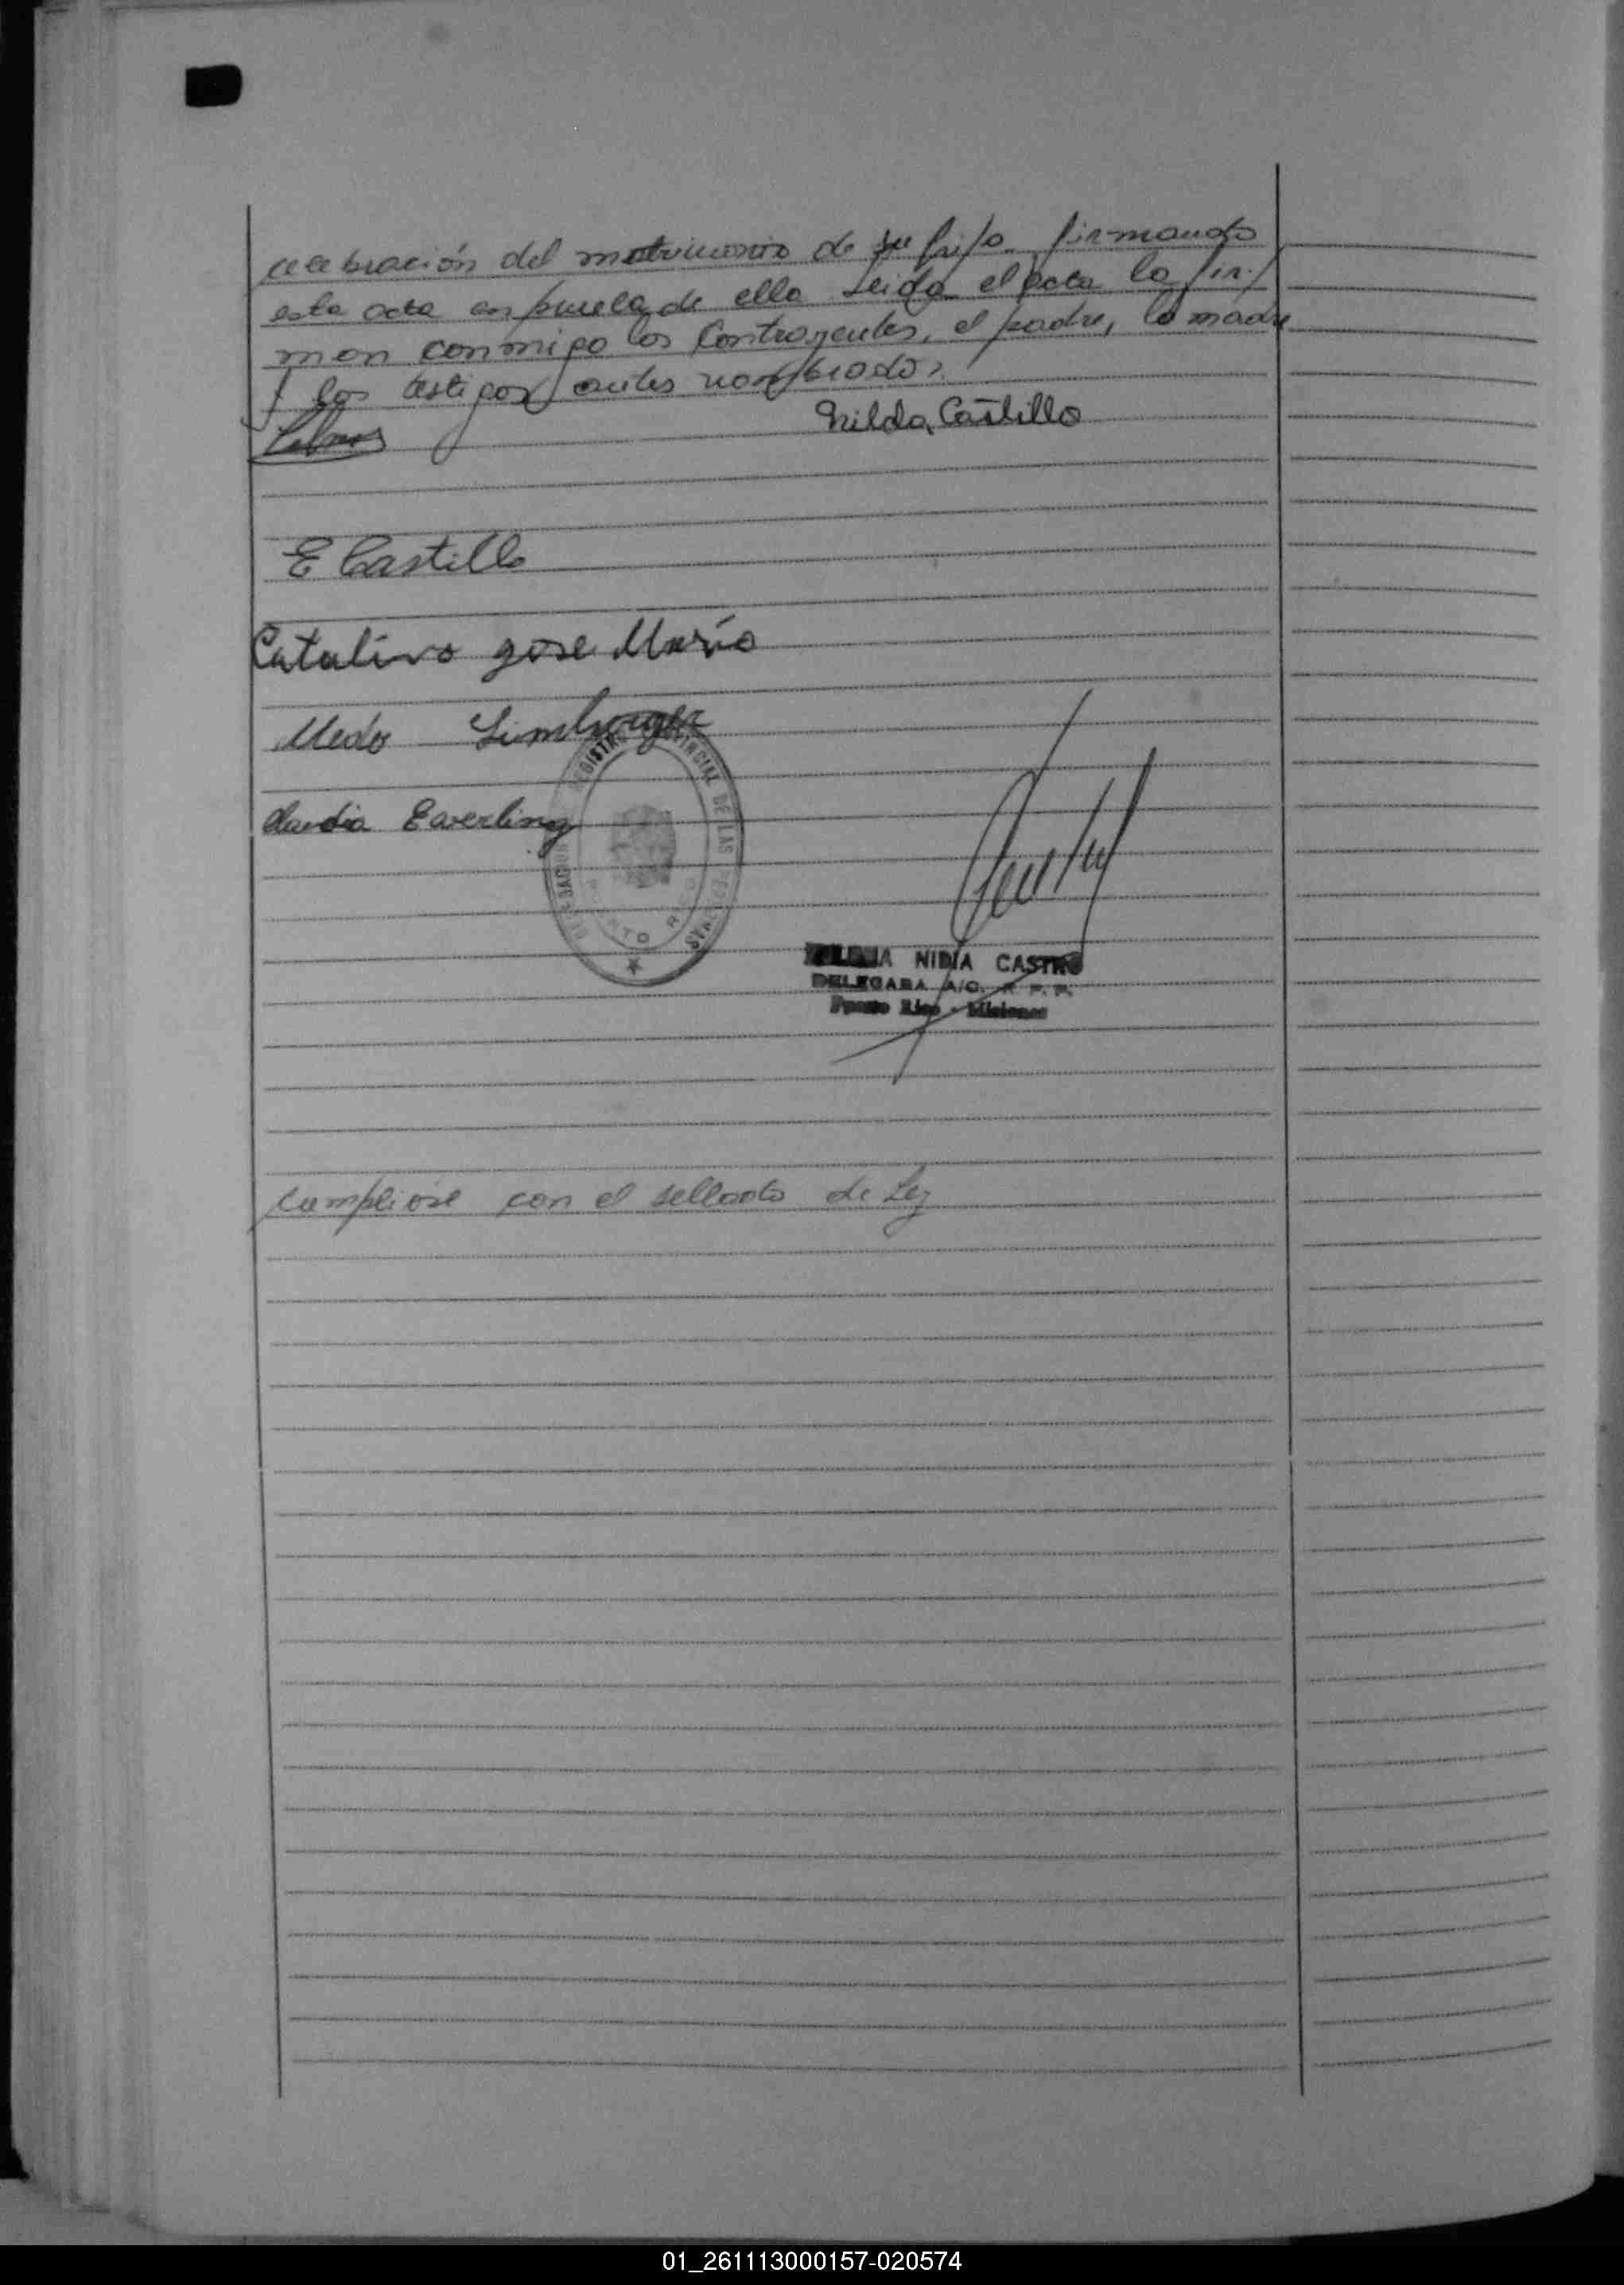 celebración del matrimonio de su hija firmando
esta acta en prueba de ello Leida el acta la fir/
man conmigo los Contrayentes, el padre, la madre
y los testigos antes nombrados.
Nilda Castillo
E Castillo
Catalino jose María
Medo Limberger
Claudia Eaverling
REGISTRO PROVINCIAL DE LAS PERSONAS
PUERTO RICO
NIDIA CASTRO
DELEGADA A/C. R. P. P.
Puerto Rico - Misiones
Cumpliose con el sellado de Ley
01_261113000157-020574